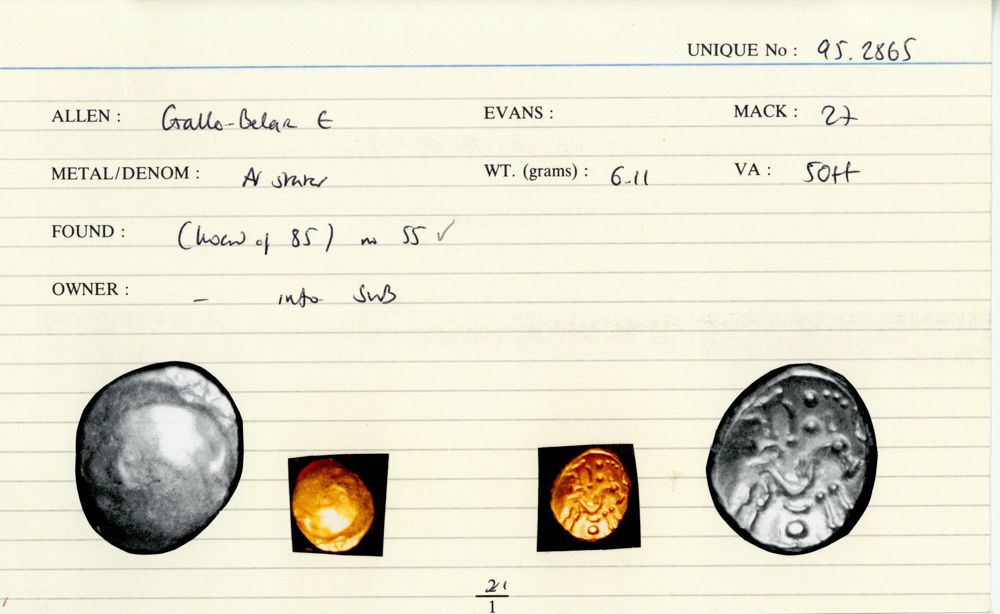 UNIQUE No : 95.2865
ALLEN : Gallo-Belgic E EVANS : MACK : 27
METAL/DENOM : AV stater WT. (grams) : 6.11 VA : 50ff
FOUND : (hoard of 85) no 55 ✓
OWNER : – info SWB
21
1